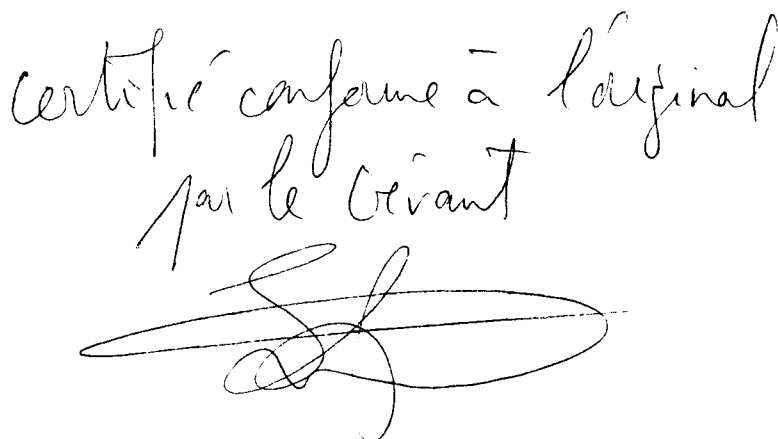 certifié conforme à l'original
par le Gérant